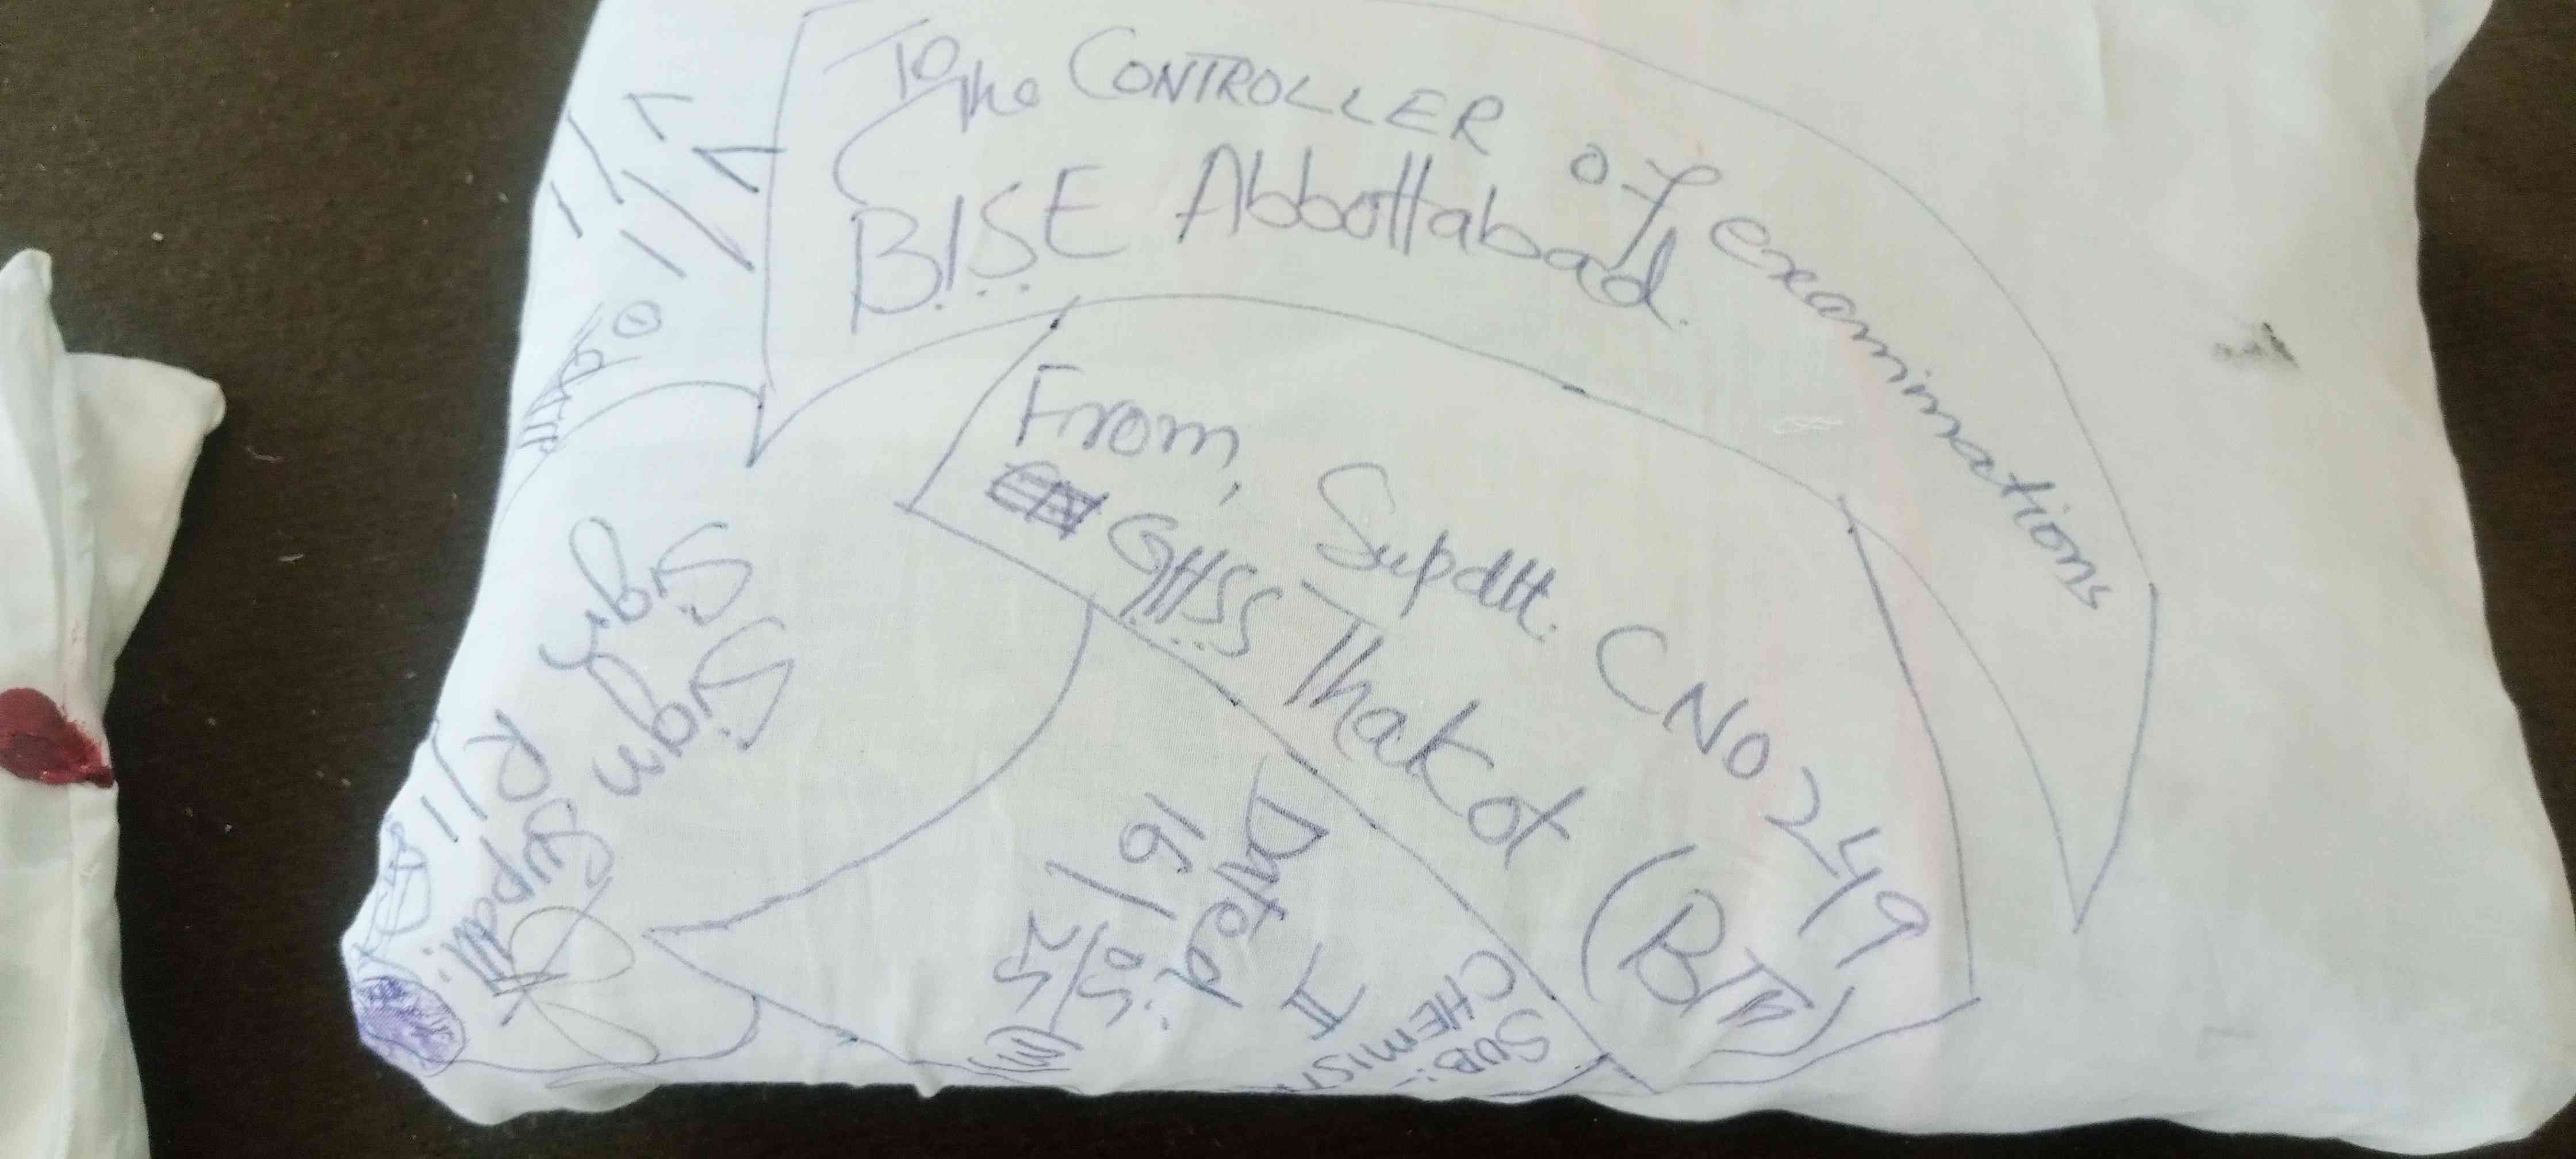 To
The CONTROLLER of examinations
B.I.S.E Abbottabad.
From,
Supdtt. CNO 249
GHSS Thakot (BTM)
SUB:-
CHEMIST
II
Dated
16/05/25
Sign
Sign
R/I
Supdtt: